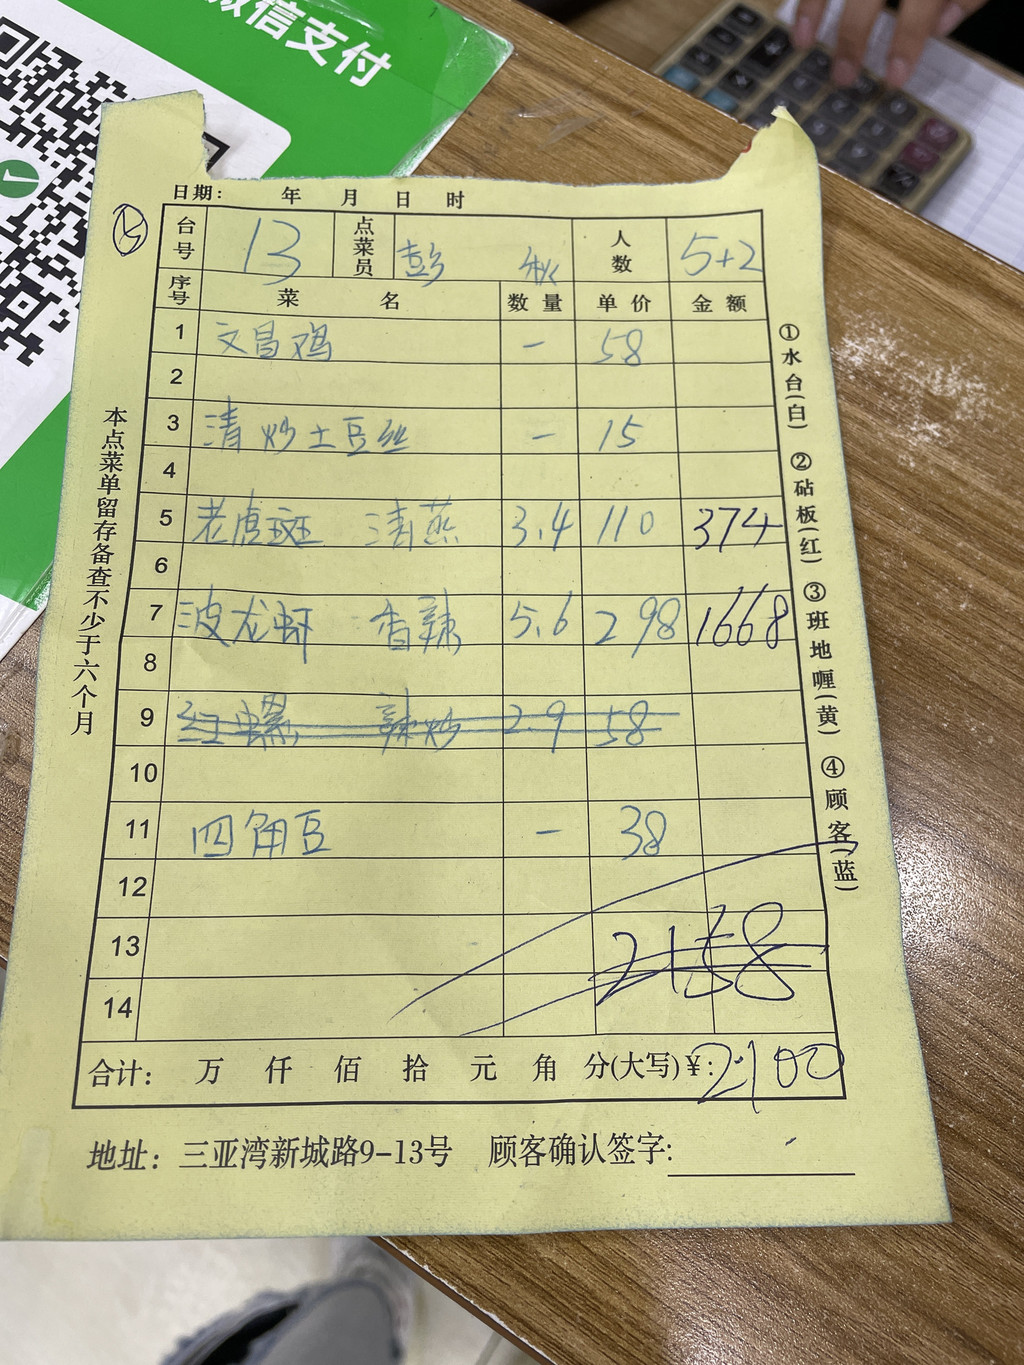 微信支付
日期： 年 月 日 时
台号 13 点菜员 彭 秋 人数 5+2
序号 菜 名 数量 单价 金额
1 文昌鸡 一 58
2
3 清炒土豆丝 一 15
4
5 老虎斑 清蒸 3.4 110 374
6
7 波龙虾 香辣 5.6 298 1668
8
9 红螺 辣炒 2.9 58
10
11 四角豆 一 38
12
13 2158
14
合计： 万 仟 佰 拾 元 角 分(大写)¥: 2100
地址：三亚湾新城路9-13号 顾客确认签字:
本点菜单留存备查不少于六个月
①水台(白) ②砧板(红) ③班地喱(黄) ④顾客(蓝)